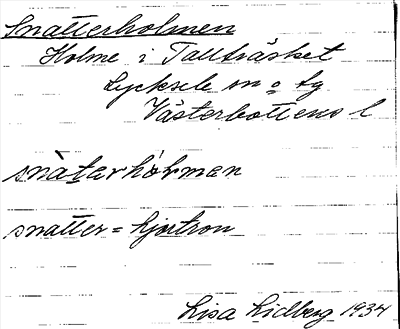 Snatterholmen
Holme i Tallträsket
Lycksele sn o tg
Västerbottens l
snàtarhòlman
snatter = hjortron
Lisa Lidberg 1934